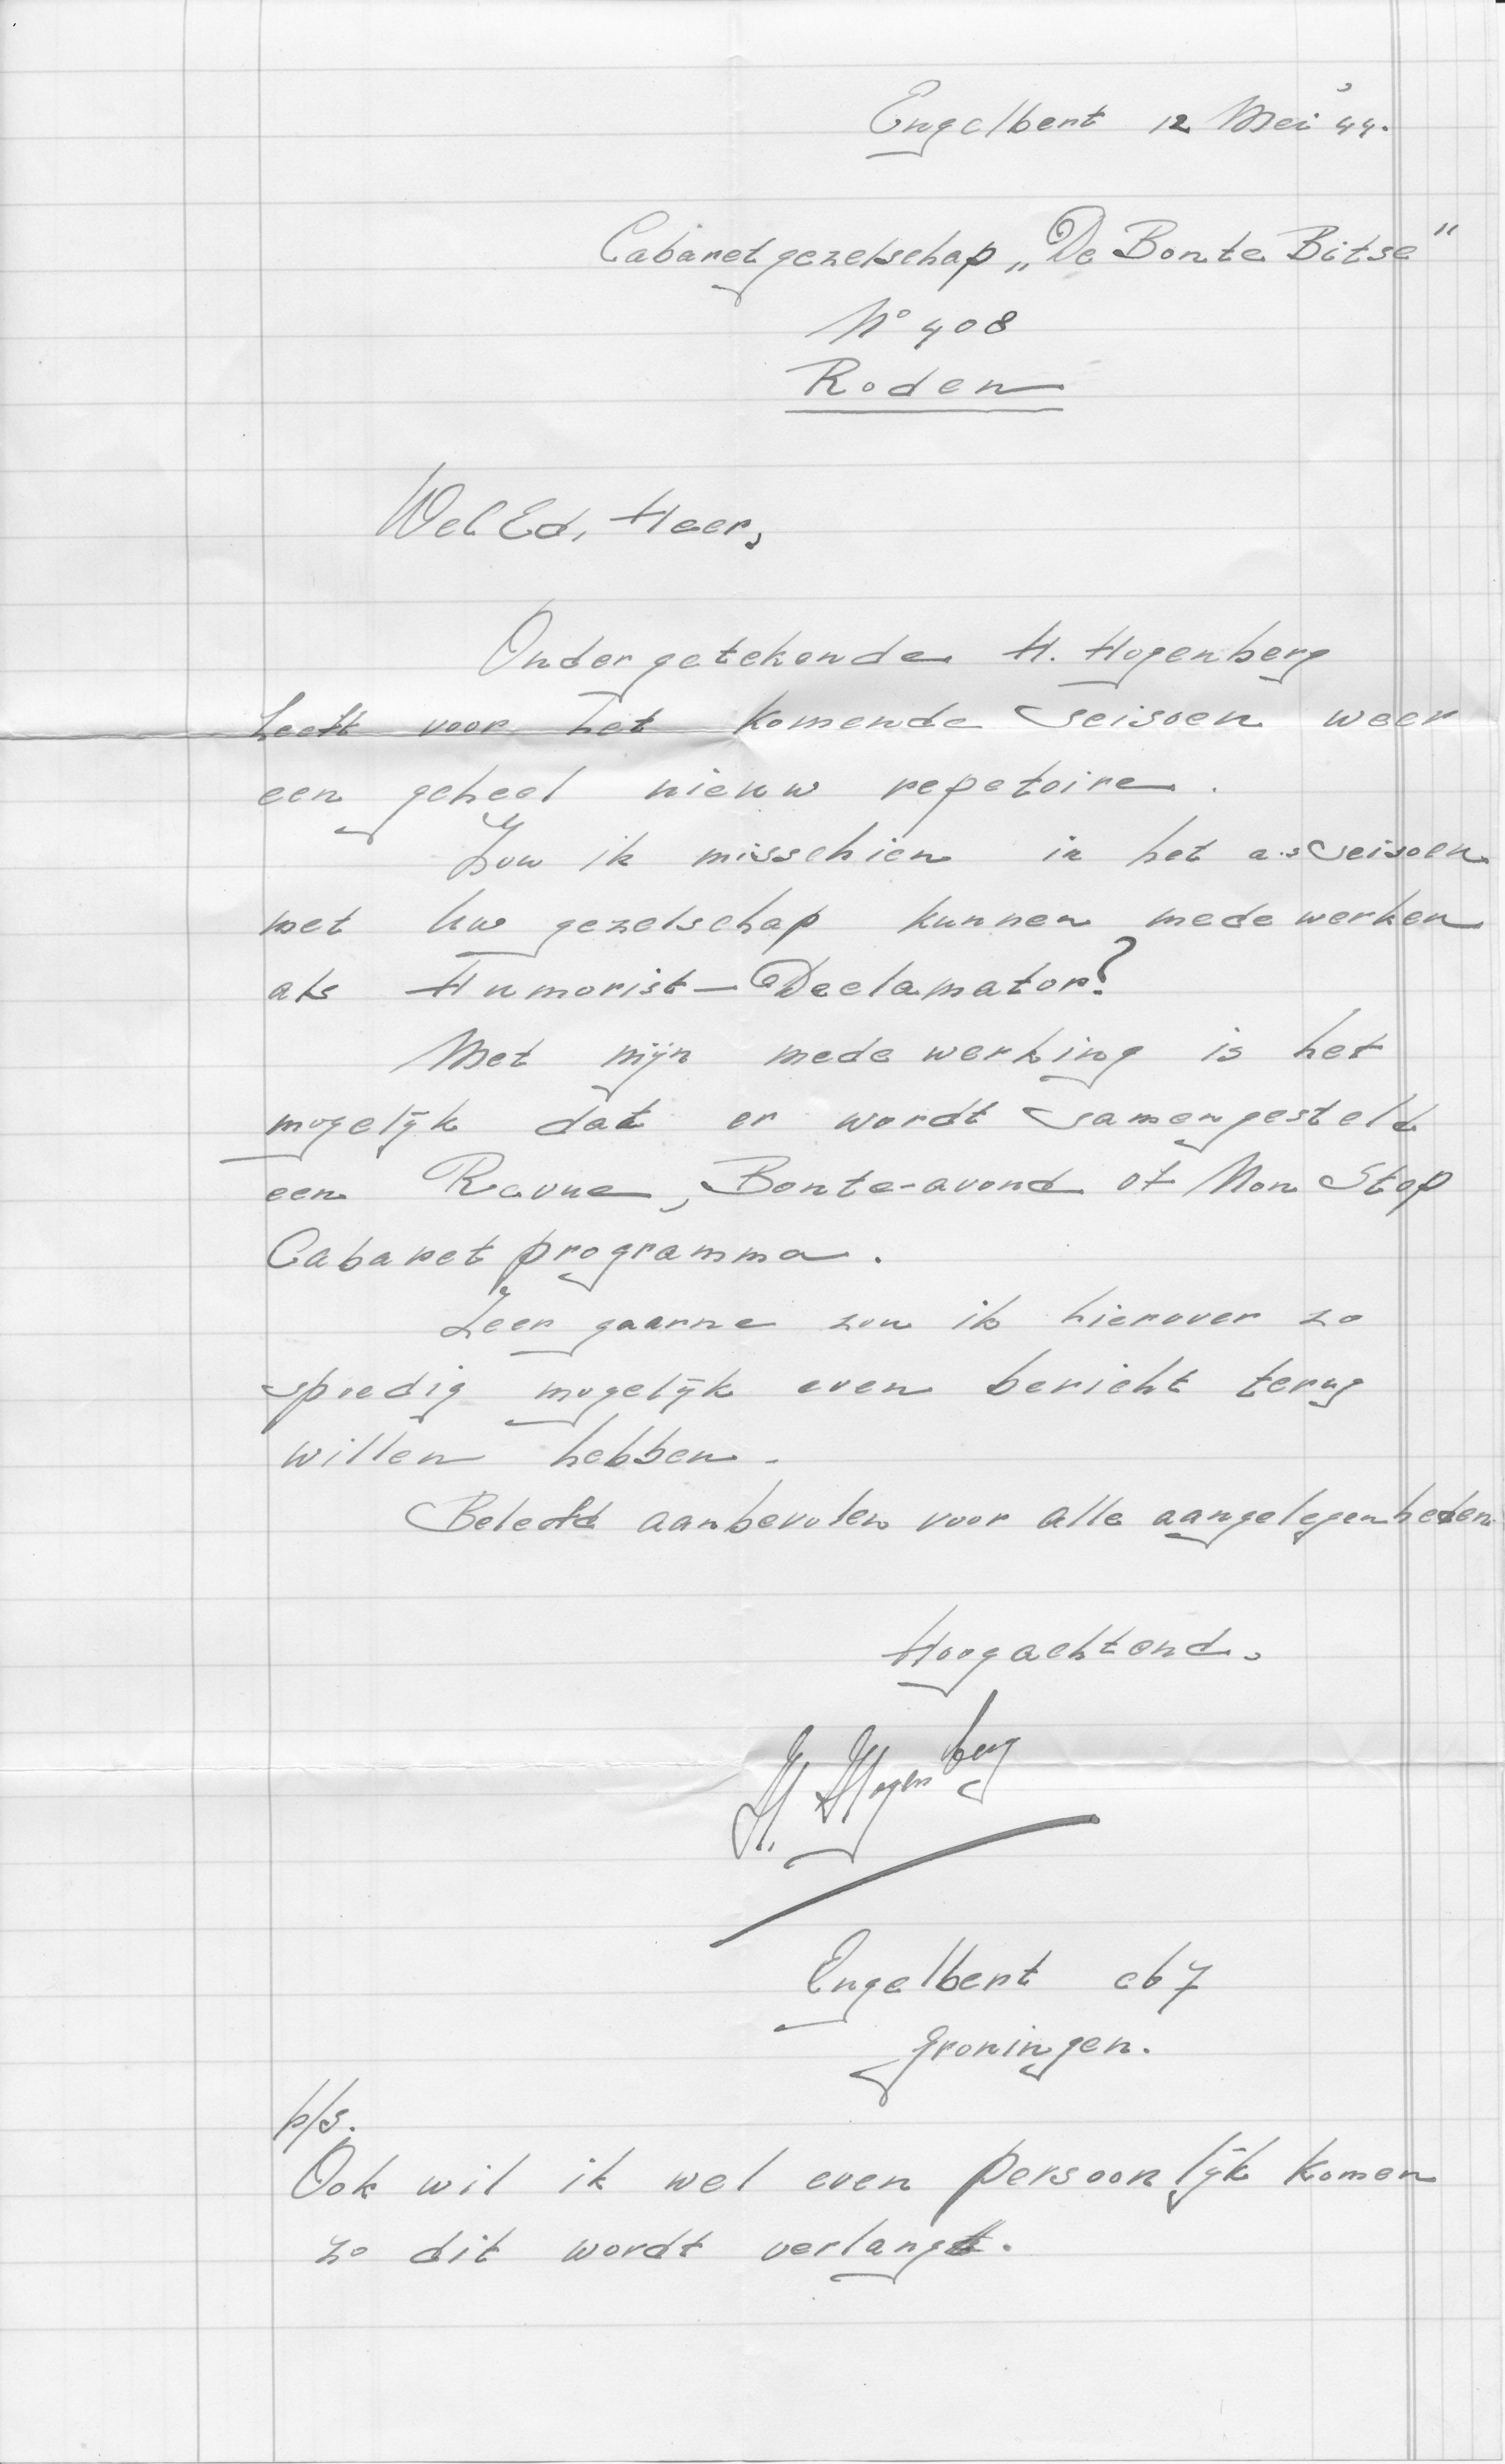 Engelbert 12 Mei '44.
Cabaretgezelschap „De Bonte Bitse"
No 408
Roden
Wel Ed, Heer,
Ondergetekende H. Hogenberg
heeft voor het komende seisoen weer
een geheel nieuw repetoire.
Zou ik misschien in het a.s seisoen
met Uw gezelschap kunnen mede werken
als Humorist - Declamator?
Met mijn mede werking is het
mogelijk dat er wordt samengesteld
een Revue, Bonte-avond of Non Stop
Cabaret programma.
Zeer gaarne zou ik hierover zo
spoedig mogelijk even bericht terug
willen hebben.
Beleefd aanbevolen voor alle aangelegenheden
Hoogachtend.
H. Hogenberg
Engelbert 67
Groningen.
p/s.
Ook wil ik wel even persoonlijk komen
zo dit wordt verlangt.